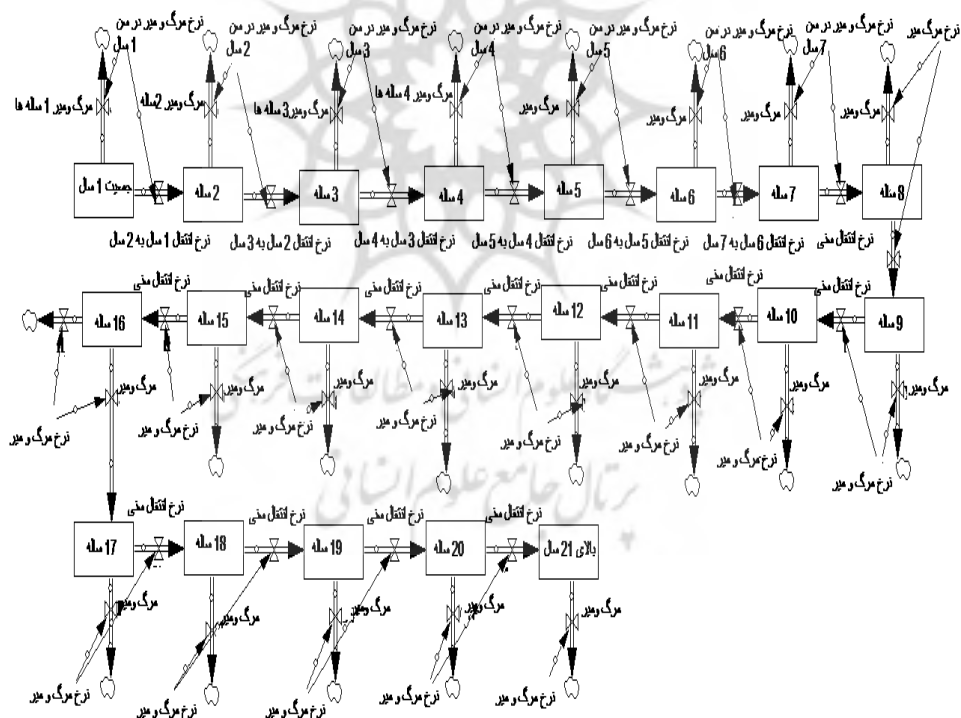 نرخ مرگ و میر در سن 1 سال
نرخ مرگ و میر در سن 2 سال
نرخ مرگ و میر در سن 3 سال
نرخ مرگ و میر در سن 4 سال
نرخ مرگ و میر در سن 5 سال
نرخ مرگ و میر در سن 6 سال
نرخ مرگ و میر در سن 7 سال
نرخ مرگ میر
مرگ ومیر 1 ساله ها
مرگ ومیر 2 ساله
مرگ ومیر 3 ساله ها
مرگ ومیر 4 ساله ها
مرگ ومیر
مرگ ومیر
مرگ ومیر
مرگ ومیر
جمعیت 1 سال
2 ساله
3 ساله
4 ساله
5 ساله
6 ساله
7 ساله
8 ساله
نرخ انتقال 1 سال به 2 سال
نرخ انتقال 2 سال به 3 سال
نرخ انتقال 3 سال به 4 سال
نرخ انتقال 4 سال به 5 سال
نرخ انتقال 5 سال به 6 سال
نرخ انتقال 6 سال به 7 سال
نرخ انتقال سنی
نرخ انتقال سنی
نرخ انتقال سنی
نرخ انتقال سنی
نرخ انتقال سنی
نرخ انتقال سنی
نرخ انتقال سنی
نرخ انتقال سنی
9 ساله
10 ساله
11 ساله
12 ساله
13 ساله
14 ساله
15 ساله
16 ساله
مرگ ومیر
مرگ ومیر
مرگ ومیر
مرگ ومیر
مرگ ومیر
مرگ ومیر
مرگ ومیر
مرگ ومیر
نرخ مرگ و میر
نرخ مرگ و میر
نرخ مرگ و میر
نرخ مرگ و میر
نرخ مرگ و میر
نرخ مرگ و میر
نرخ مرگ و میر
نرخ مرگ و میر
پژوهشگاه علوم انسانی و مطالعات فرهنگی
پرتال جامع علوم انسانی
نرخ انتقال سنی
نرخ انتقال سنی
نرخ انتقال سنی
نرخ انتقال سنی
17 ساله
18 ساله
19 ساله
20 ساله
بالای 21 سال
مرگ ومیر
مرگ ومیر
مرگ ومیر
مرگ ومیر
مرگ ومیر
نرخ مرگ و میر
نرخ مرگ و میر
نرخ مرگ و میر
نرخ مرگ و میر
نرخ مرگ و میر